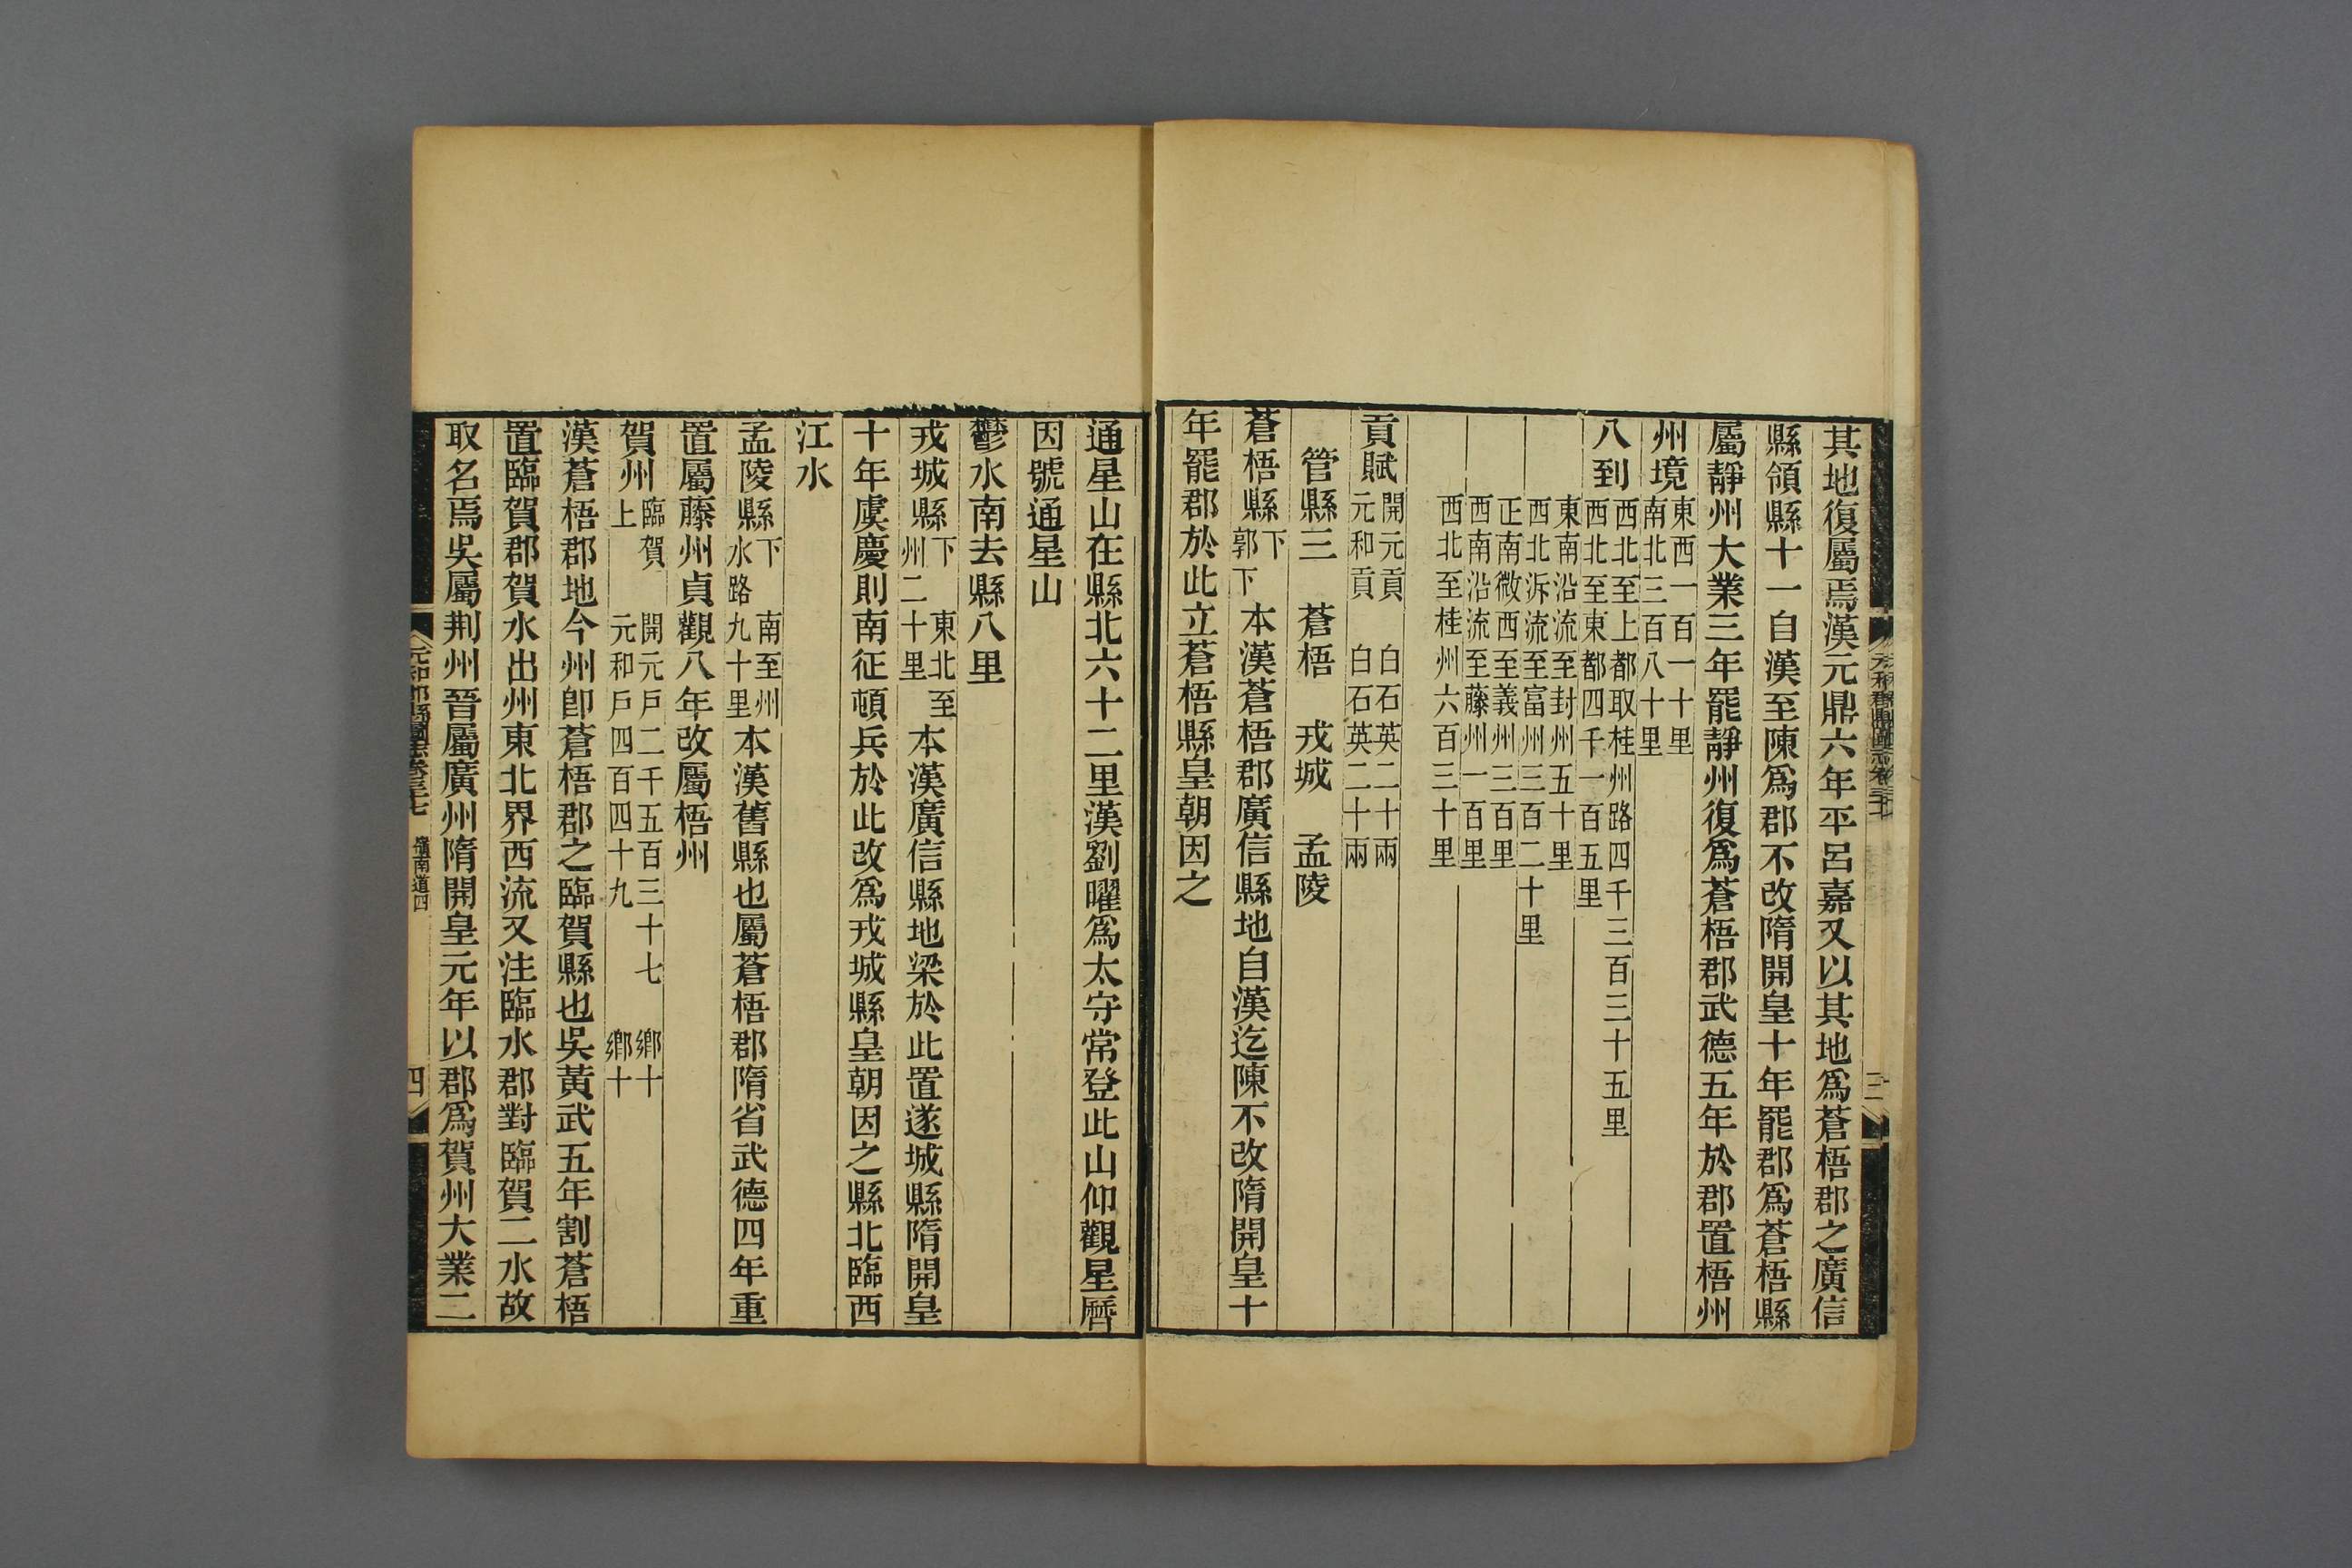 其地復屬焉漢元鼎六年平呂嘉又以其地爲蒼梧郡之廣信
縣領縣十一自漢至陳爲郡不改隋開皇十年罷郡爲蒼梧縣
屬靜州大業三年罷靜州復爲蒼梧郡武德五年於郡置梧州
州境東西一百一十里
南北三百八十里
八到西北至上都取桂州路四千三百三十五里
西北至東都四千一百五里
東南沿流至封州五十里
西北泝流至富州三百二十里
正南微西至義州三百里
西南沿流至藤州一百里
西北至桂州六百三十里
貢賦開元貢 白石英二十兩
元和貢 白石英二十兩
管縣三 蒼梧 戎城 孟陵
蒼梧縣下
郭下 本漢蒼梧郡廣信縣地自漢迄陳不改隋開皇十
年罷郡於此立蒼梧縣皇朝因之
通星山在縣北六十二里漢劉曜爲太守常登此山仰觀星曆
因號通星山
鬱水南去縣八里
戎城縣下 東北至
州二十里 本漢廣信縣地梁於此置遂城縣隋開皇
十年虞慶則南征頓兵於此改爲戎城縣皇朝因之縣北臨西
江水
孟陵縣下 南至州
水路九十里 本漢舊縣也屬蒼梧郡隋省武德四年重
置屬藤州貞觀八年改屬梧州
賀州臨賀 開元戶二千五百三十七 鄉十
上 元和戶四百四十九 鄉十
漢蒼梧郡地今州卽蒼梧郡之臨賀縣也吳黃武五年割蒼梧
置臨賀郡賀水出州東北界西流又注臨水郡對臨賀二水故
取名焉吳屬荆州晉屬廣州隋開皇元年以郡爲賀州大業二
元和郡縣圖志卷三十七 嶺南道四 四